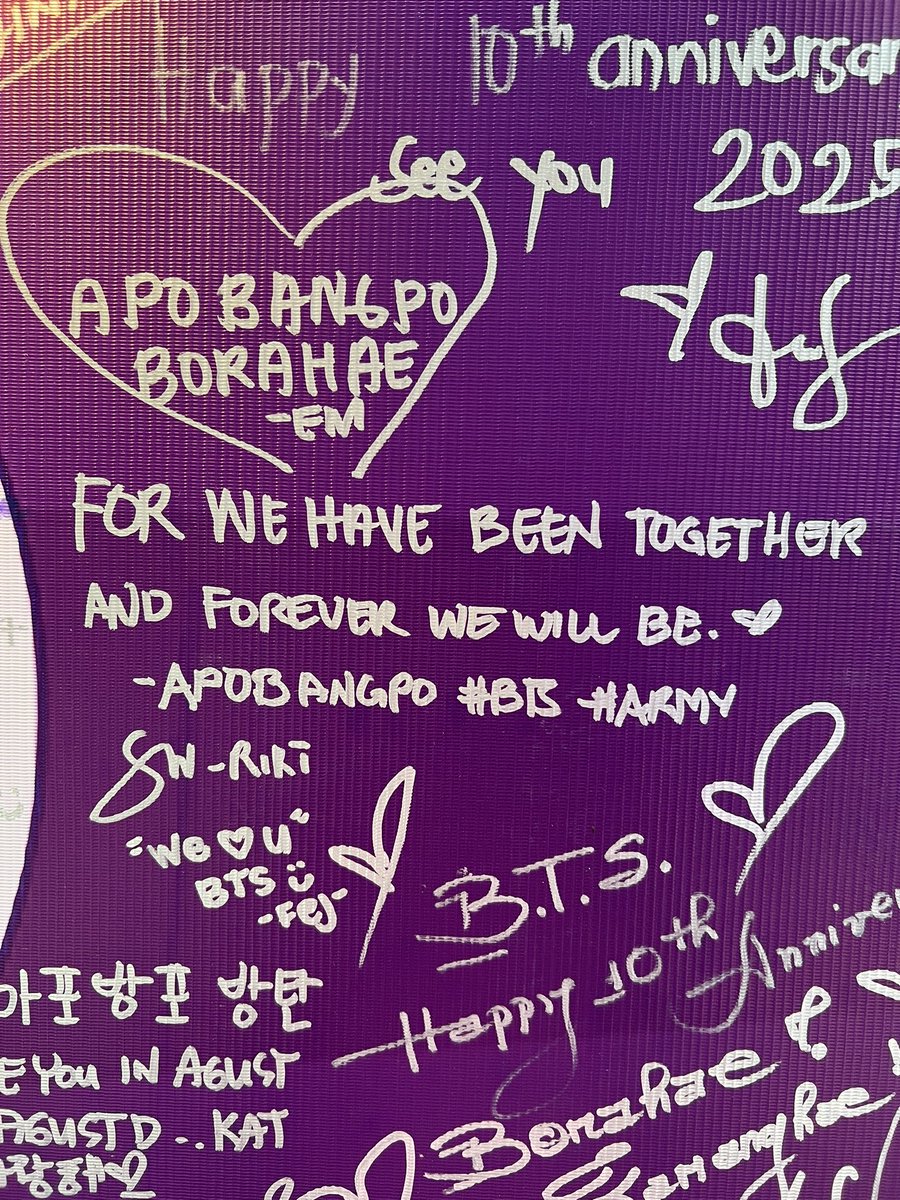 Happy 10th anniversar
See you 2025
APOBANGPO
BORAHAE
-EM
FOR WE HAVE BEEN TOGETHER
AND FOREVER WE WILL BE.
-APOBANGPO #BTS #ARMY
SW-RIRI
"We ♡ U"
BTS
-FEJ-
B.T.S.
Happy 10th Annive
아포방포 방탄
E YOU IN AGUST
AGUST D...KAT
Borahae &
Saranghae